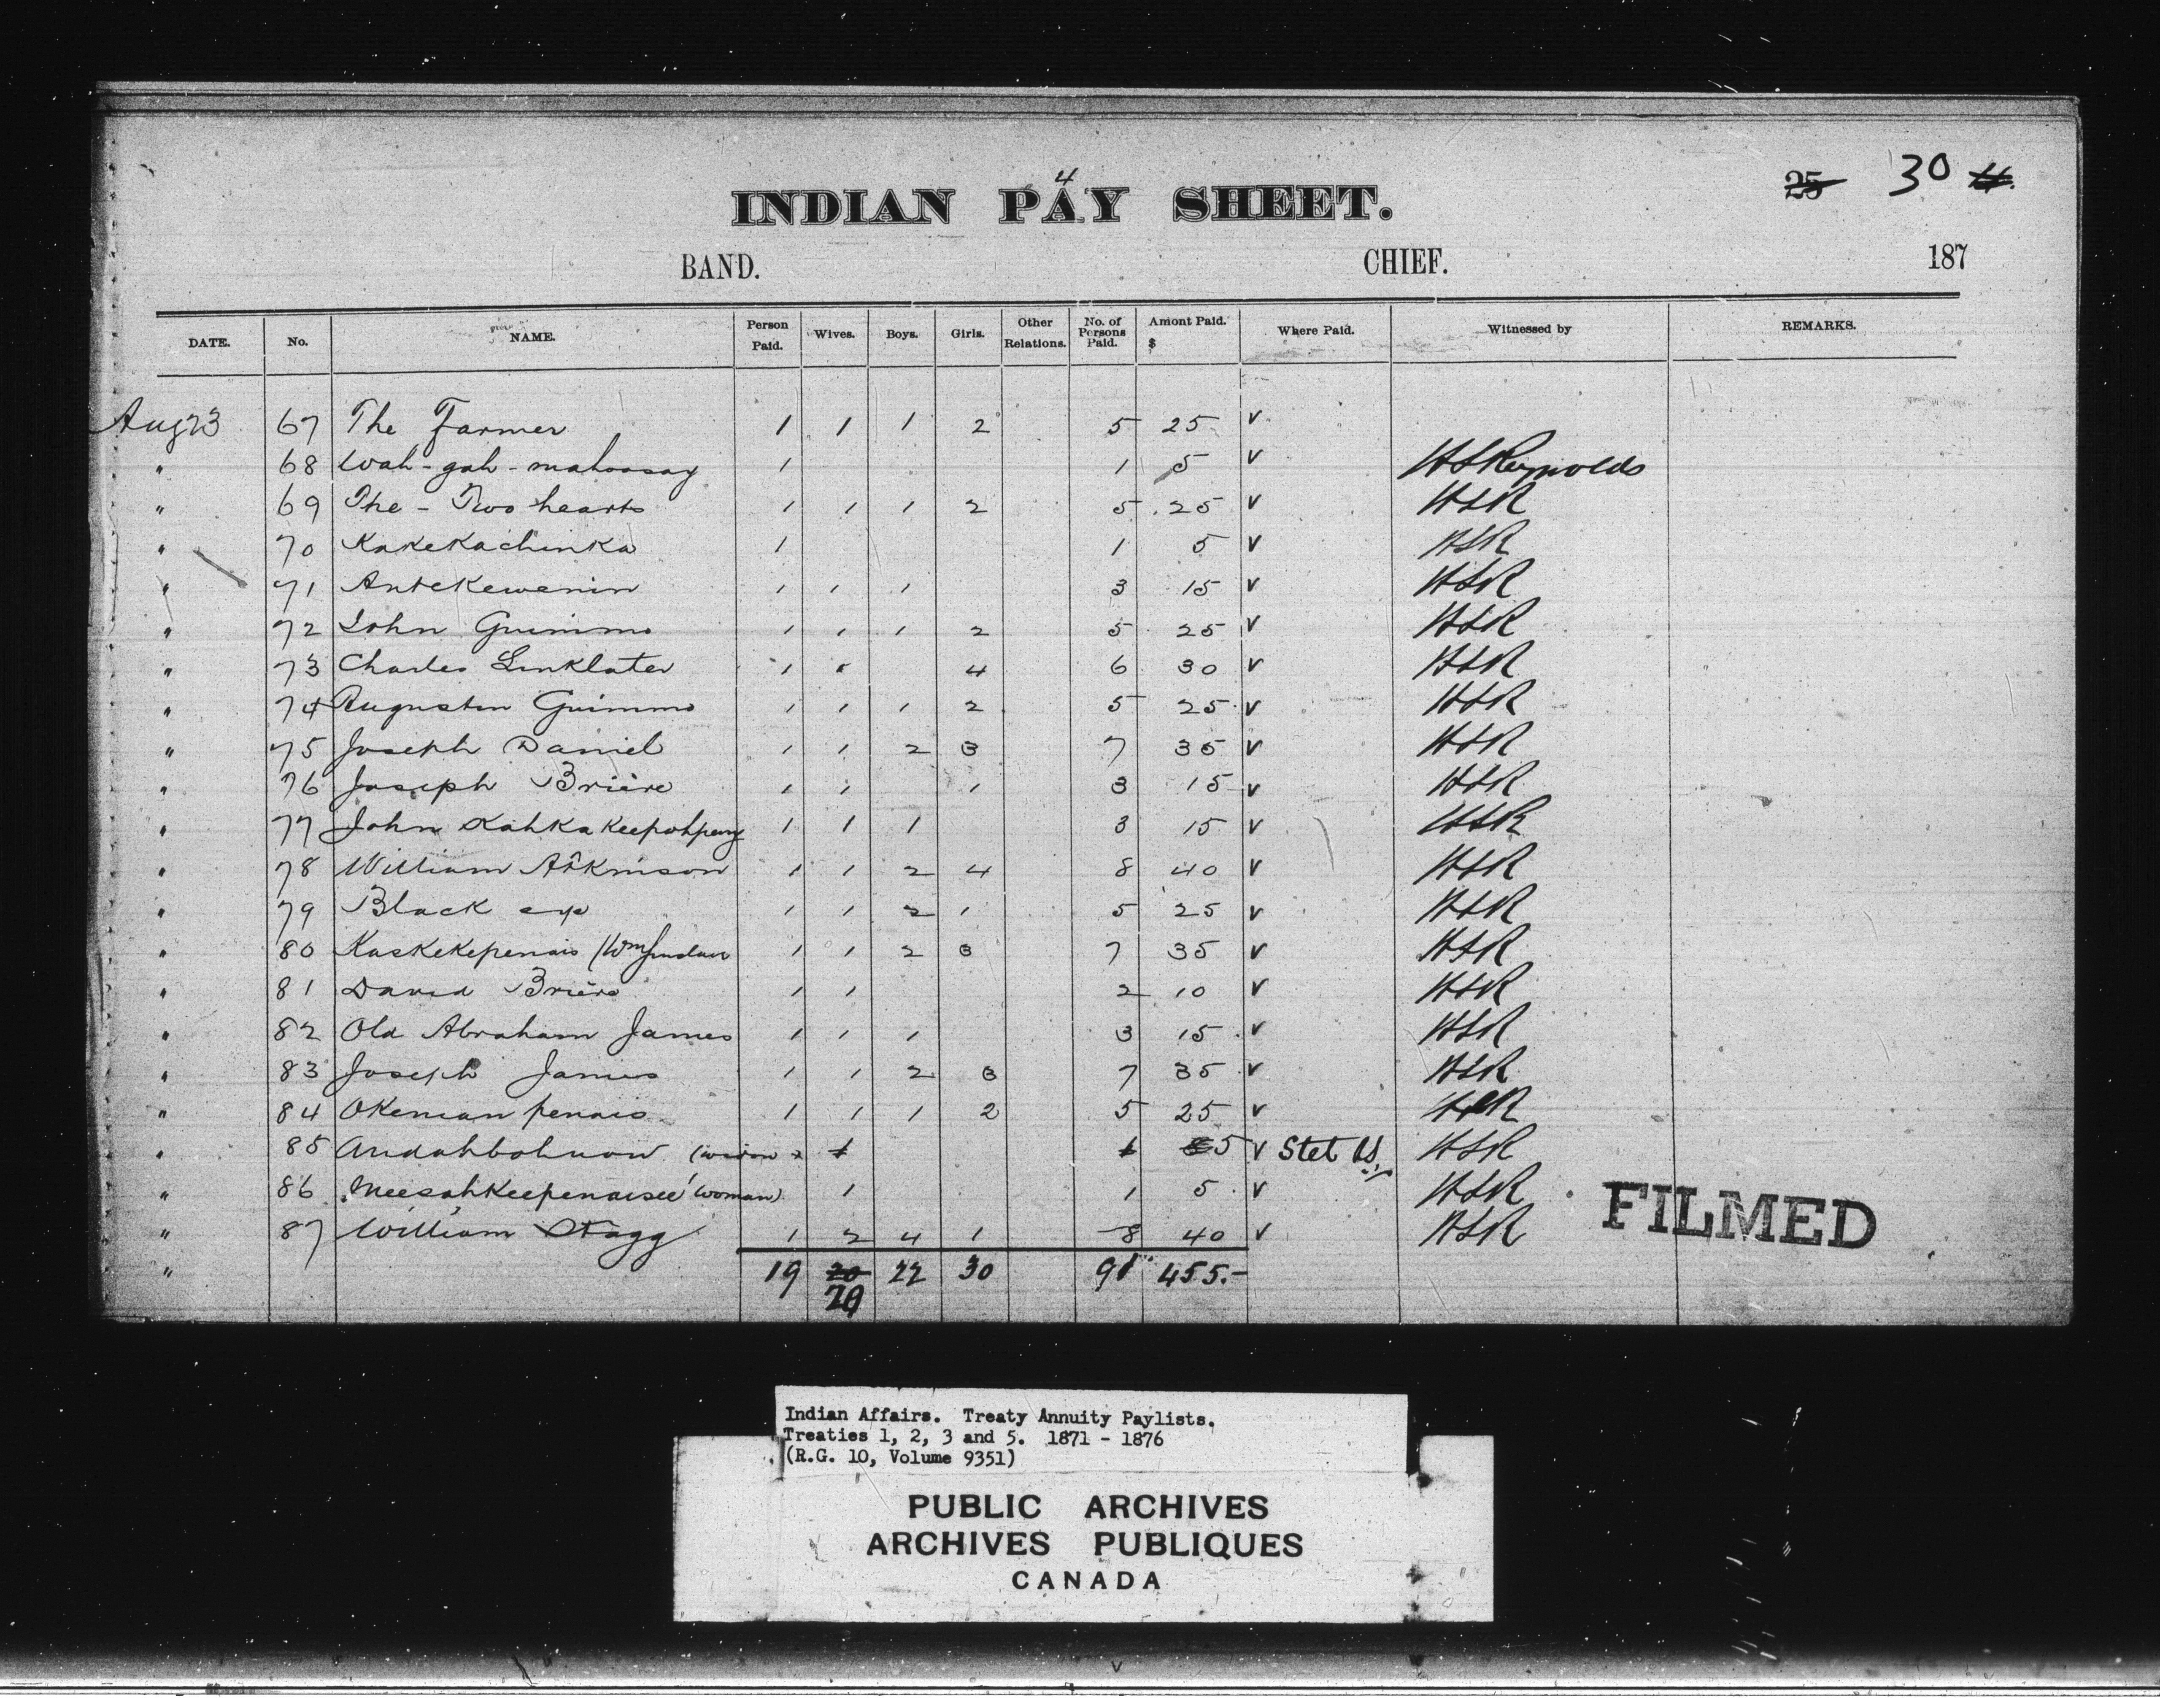 4
25 30 4.
INDIAN PAY SHEET.
BAND. CHIEF. 187
DATE. No. NAME. Person Paid. Wives. Boys. Girls. Other Relations. No. of Persons Paid. Amont Paid. $ Where Paid. Witnessed by REMARKS.
Aug 23 67 The Farmer 1 1 1 2 5 25 v
" 68 Wah-gah-mahoosay 1 1 5 v HSReynolds
" 69 The - Two hearts 1 1 1 2 5 25 v HSR
" 70 Kakekachinka 1 1 5 v HSR
" 71 Antekewenin 1 1 1 3 15 v HSR
" 72 John Guimmo 1 1 1 2 5 25 v HSR
" 73 Charles Linklater 1 1 4 6 30 v HSR
" 74 Augustin Guimmo 1 1 1 2 5 25 v HSR
" 75 Joseph Daniel 1 1 2 3 7 35 v HSR
" 76 Joseph Brière 1 1 1 3 15 v HSR
" 77 John Kahkakeepohpeny 1 1 1 3 15 v HSR
" 78 William Atkinson 1 1 2 4 8 40 v HSR
" 79 Black eye 1 1 2 1 5 25 v HSR
" 80 Kaskekepenais (Wm 1 1 2 3 7 35 v HSR
" 81 David Brière 1 1 2 10 v HSR
" 82 Old Abraham James 1 1 1 3 15 v HSR
" 83 Joseph James 1 1 2 3 7 35 v HSR
" 84 Okeman penais 1 1 1 2 5 25 v HSR
" 85 Andahbohnow 1 1 5 v Stet HSR
" 86 Meesahkeepenaisee (woman) 1 1 5 v HSR
" 87 William Stagg 1 2 4 1 8 40 v HSR
" 19 20 22 30 91 455.-
FILMED
Indian Affairs. Treaty Annuity Paylists.
Treaties 1, 2, 3 and 5. 1871 - 1876
(R.G. 10, Volume 9351)
PUBLIC ARCHIVES
ARCHIVES PUBLIQUES
CANADA